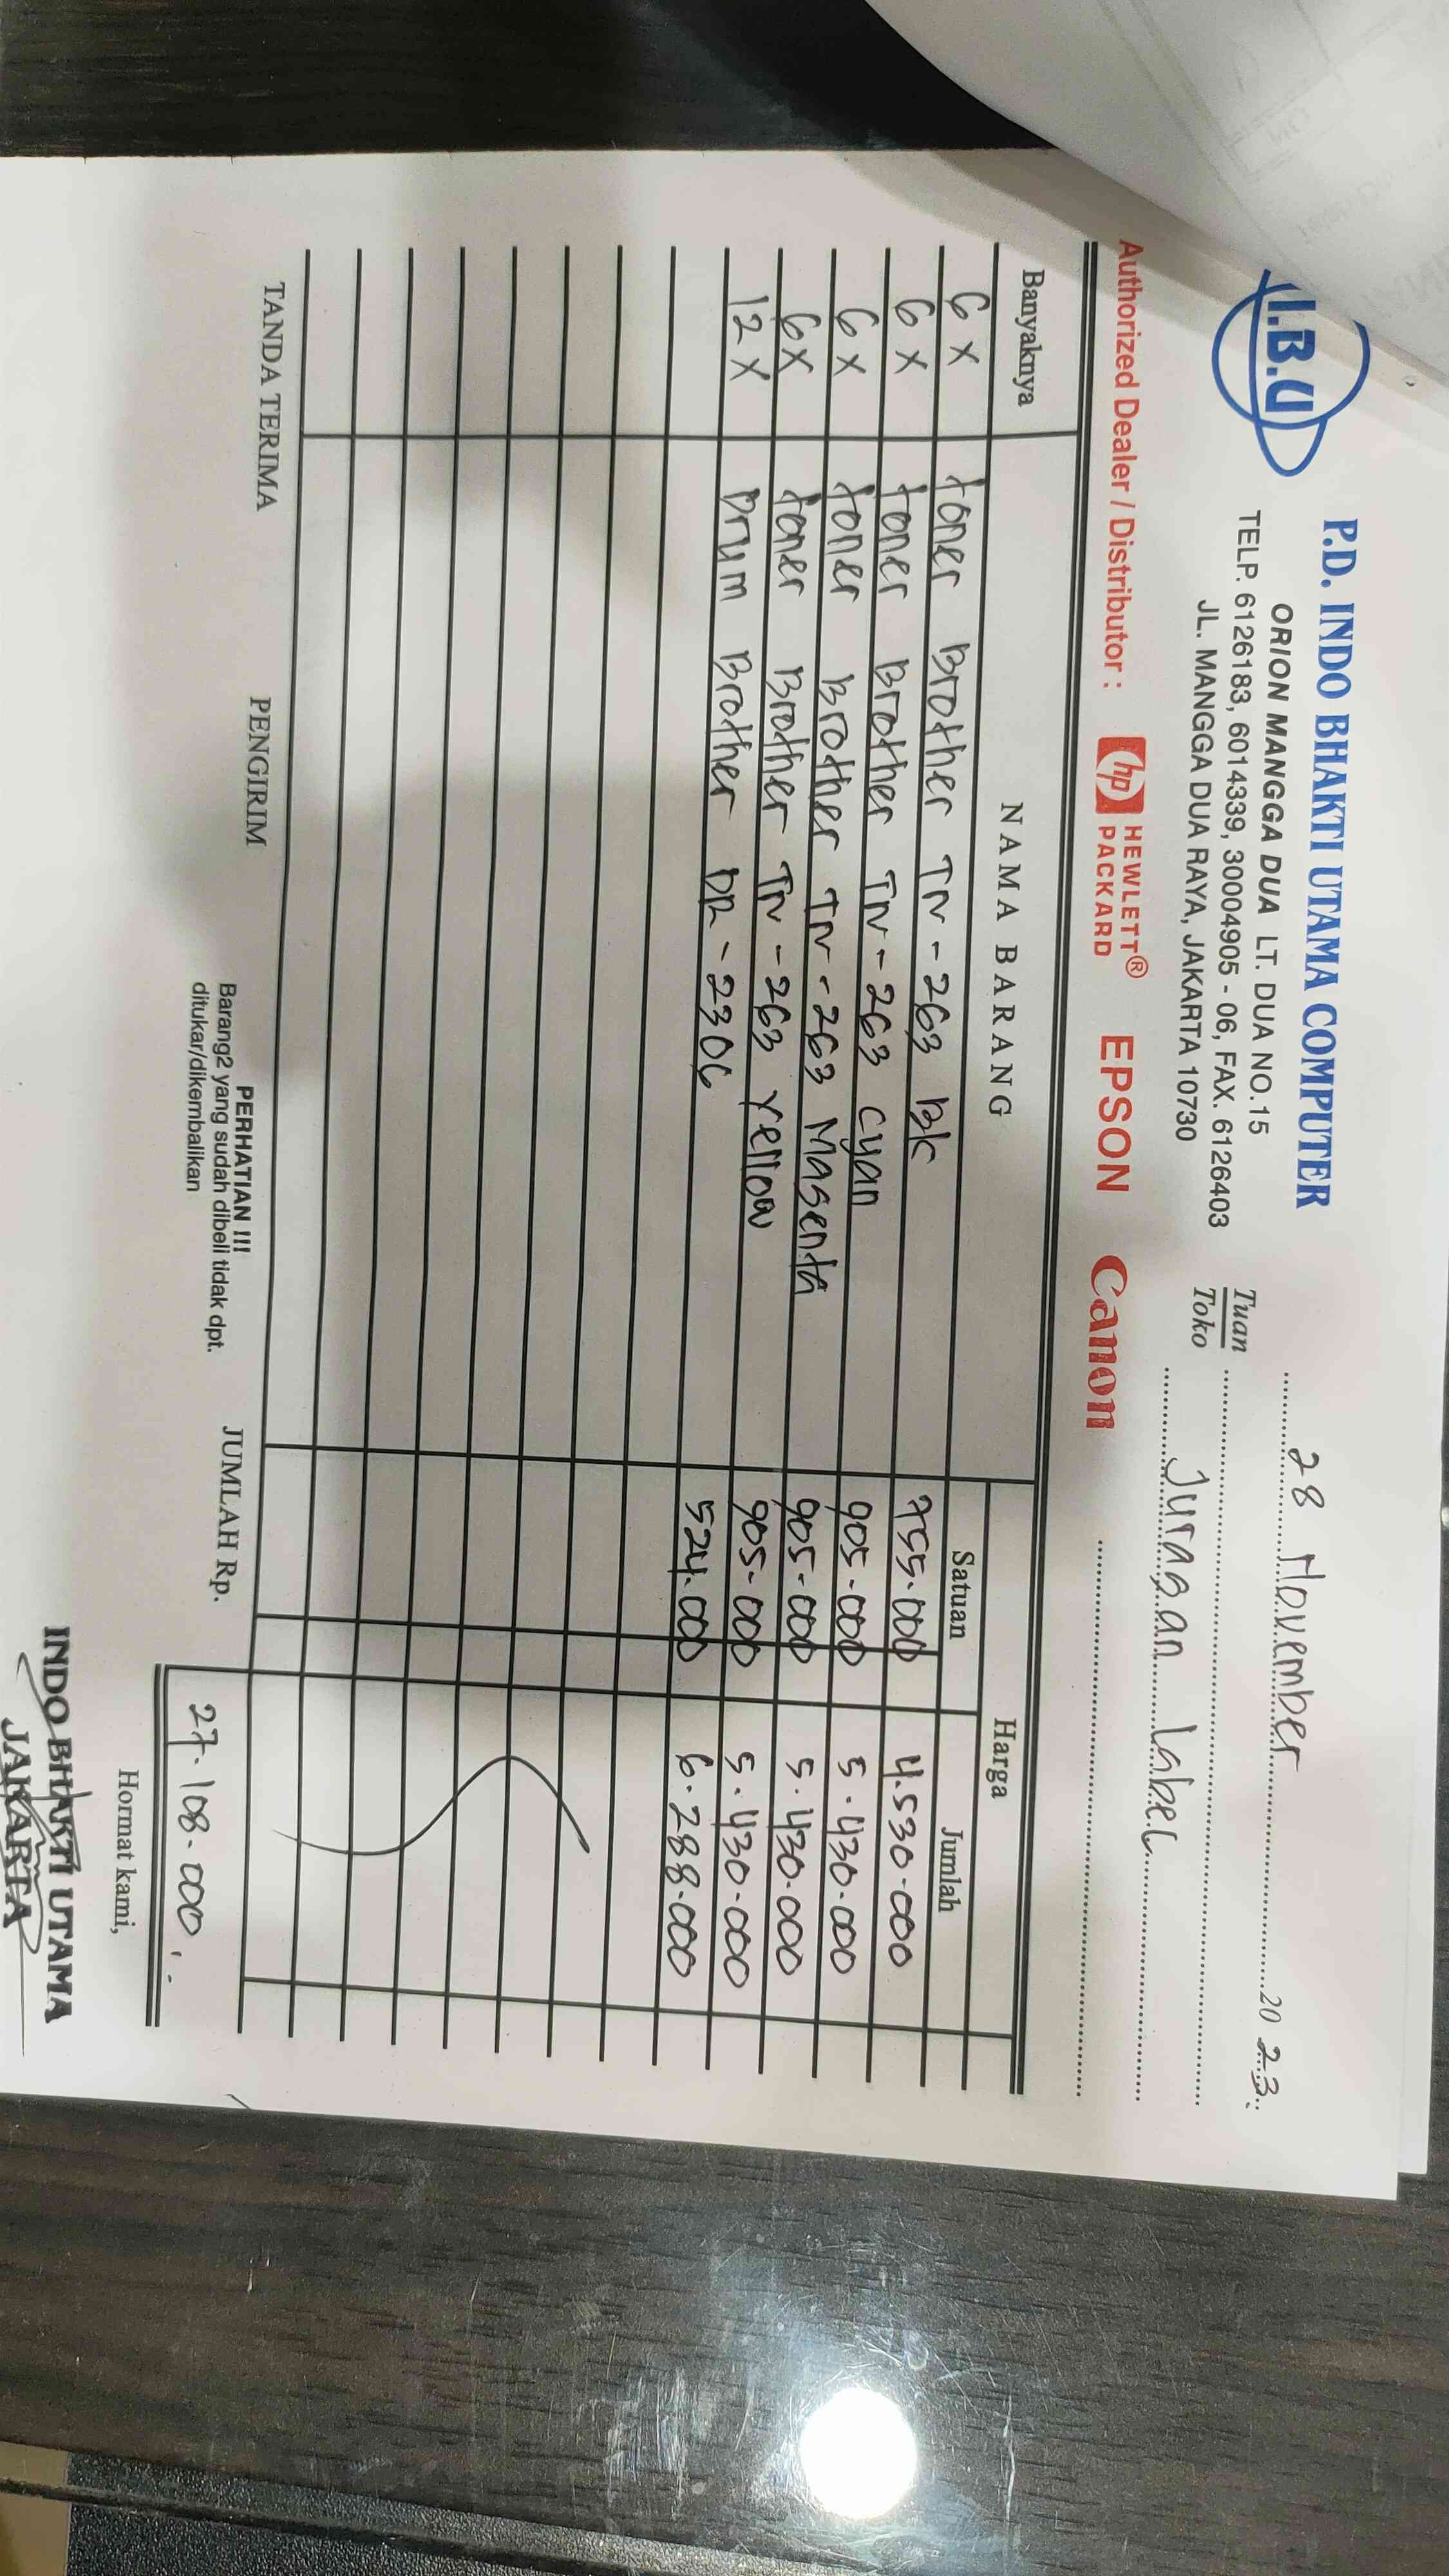 I.B.U
P.D. INDO BHAKTI UTAMA COMPUTER
ORION MANGGA DUA LT. DUA NO.15
TELP. 6126183, 6014339, 30004905 - 06, FAX. 6126403
JL. MANGGA DUA RAYA, JAKARTA 10730
28 November 2023
Tuan
Toko
Juragan Label
Authorized Dealer / Distributor : hp HEWLETT® PACKARD EPSON Canon
Banyaknya NAMA BARANG Harga
Satuan Jumlah
6 X toner Brother TN - 263 BK 755.000 4.530.000
6 X toner Brother TN - 263 Cyan 905.000 5.430.000
6 X toner Brother TN - 263 Masenta 905.000 5.430.000
6 X toner Brother TN - 263 Yellow 905.000 5.430.000
12 X Drum Brother DR - 2306 524.000 6.288.000
TANDA TERIMA PENGIRIM JUMLAH Rp. 27.108.000
PERHATIAN !!!
Barang2 yang sudah dibeli tidak dpt.
ditukar/dikembalikan
Hormat kami,
INDO BHAKTI UTAMA
JAKARTA